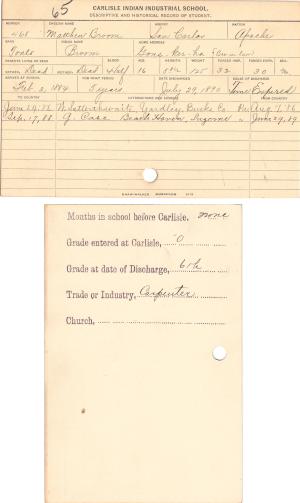 65
CARLISLE INDIAN INDUSTRIAL SCHOOL.
DESCRIPTIVE AND HISTORICAL RECORD OF STUDENT.
NUMBER ENGLISH NAME AGENCY NATION
468 Matthew Broom San Carlos Apache
BAND INDIAN NAME HOME ADDRESS
Tonto Broom
PARENTS LIVING OR DEAD BLOOD AGE HEIGHT WEIGHT FORCED INSP. FORCED EXPR. SEX
FATHER Dead MOTHER Dead 4/4 16 125 32 30 M
ARRIVED AT SCHOOL FOR WHAT PERIOD DATE DISCHARGED CAUSE OF DISCHARGE
Feb. 2, 1884 5 years July 29, 1890 Time Expired
TO COUNTRY PATRONS NAME AND ADDRESS FROM COUNTRY
W. Satterthwaite, Yardley, Bucks Co. Pa Aug. 7, 86
Sep. 17, 88 Beach Haven, Luzerne " June 29, 89
Months in school before Carlisle, none
Grade entered at Carlisle, 0
Grade at date of Discharge, 6th
Trade or Industry, Carpenter
Church,